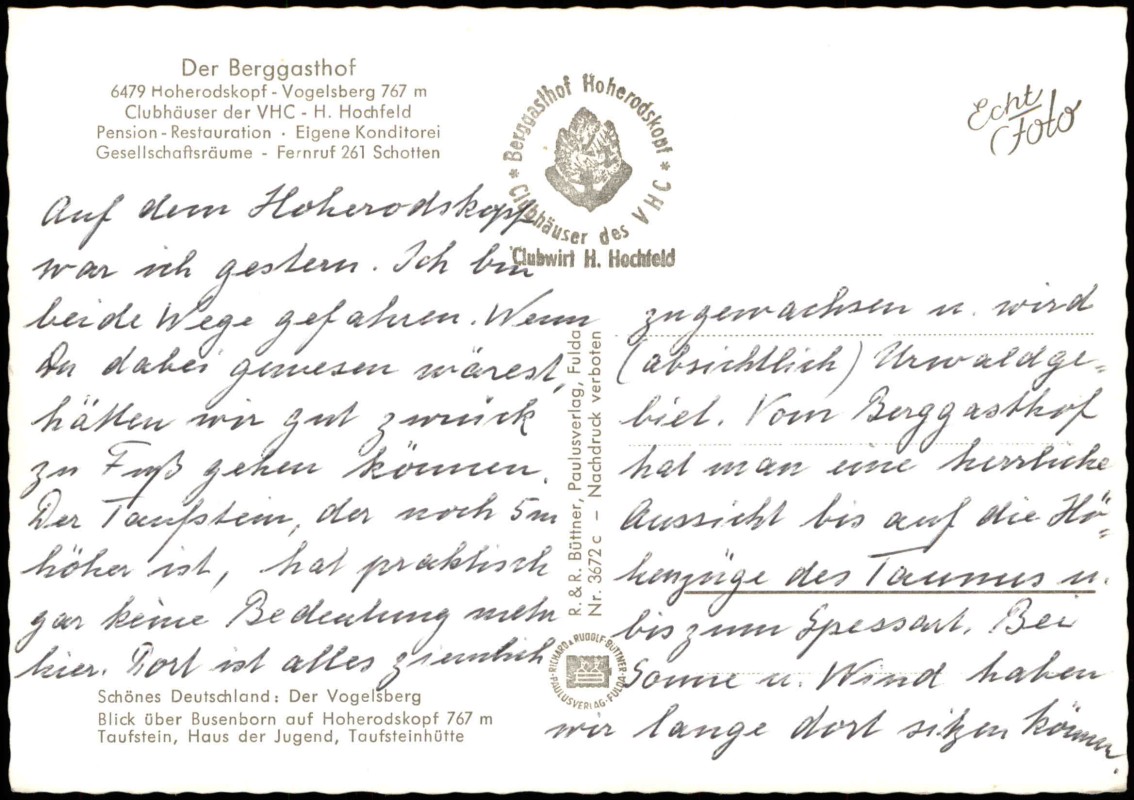 Der Berggasthof
6479 Hoherodskopf - Vogelsberg 767 m
Clubhäuser der VHC - H. Hochfeld
Pension - Restauration · Eigene Konditorei
Gesellschaftsräume - Fernruf 261 Schotten
* Berggasthof Hoherodskopf *
Clubhäuser des VHC
Clubwirt H. Hochfeld
Echt
Foto
Auf dem Hoherodskopf
war ich gestern. Ich bin
beide Wege gefahren. Wenn
Du dabei gewesen wärest,
hätten wir gut zurück
zu Fuß gehen können.
Der Taufstein, der noch 5m
höher ist, hat praktisch
gar keine Bedeutung mehr
hier. Dort ist alles ziemlich
zugewachsen u. wird
(absichtlich) Urwaldge=
biet. Vom Berggasthof
hat man eine herrliche
Aussicht bis auf die Hö=
henzüge des Taunus u.
bis zum Spessart. Bei
Sonne u. Wind haben
wir lange dort sitzen können.
R. & R. Büttner, Paulusverlag, Fulda
Nr. 3672 c – Nachdruck verboten
RICHARD & RUDOLF BÜTTNER
PAULUSVERLAG · FULDA
Schönes Deutschland: Der Vogelsberg
Blick über Busenborn auf Hoherodskopf 767 m
Taufstein, Haus der Jugend, Taufsteinhütte